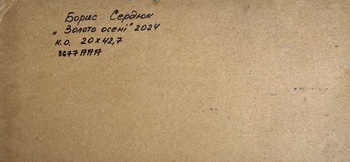 Борис Сердюк
„Золото осені" 2024
к.о. 20х42,7